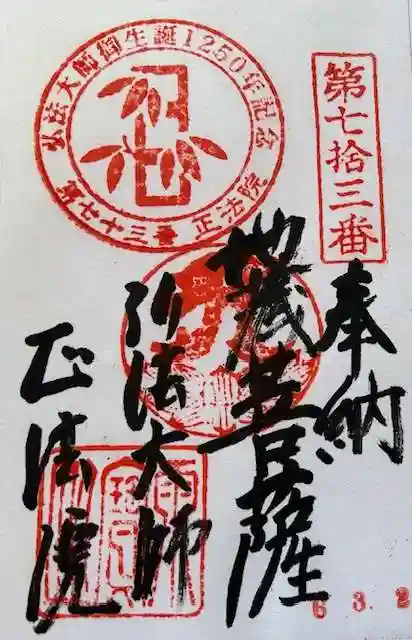 第七拾三番
奉納
地蔵菩薩
弘法大師
正法院
弘法大師御生誕1250年記念
正法院
6 3. 2